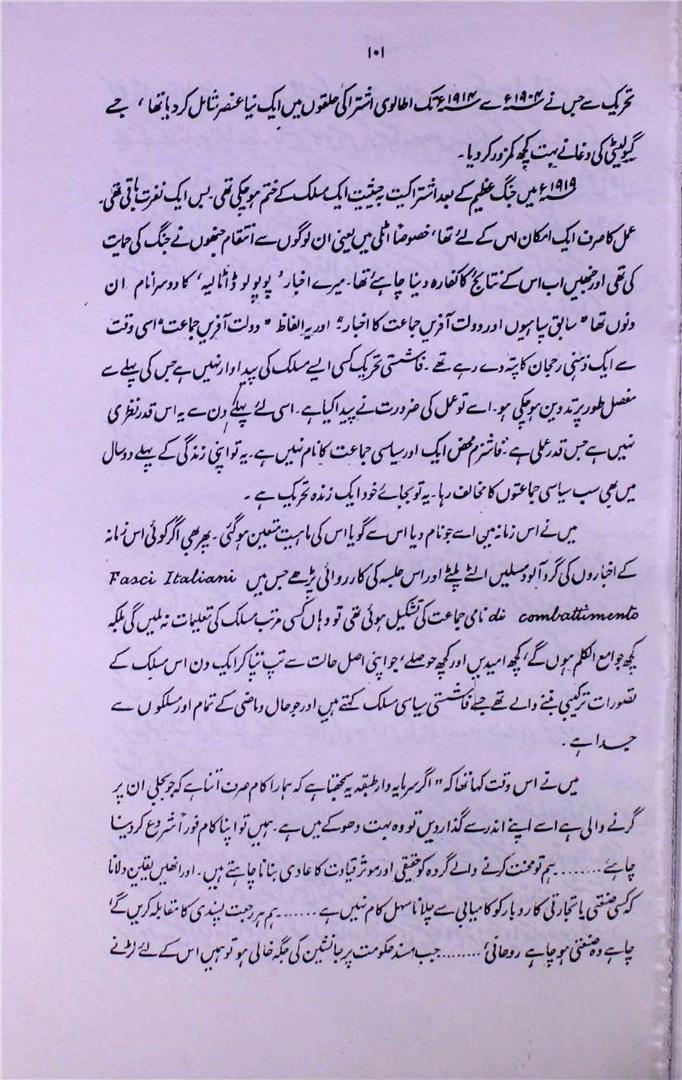 ۱۰۱
تحریک سے جس نے ۱۹۰۴ء سے ۱۹۱۴ء تک اطالوی اشتراکی حلقوں میں ایک نیا عنصر شامل کر دیا تھا، جسے
گیولیٹی کی دغا نے بہت کچھ کمزور کر دیا۔
۱۹۱۹ء میں جنگ عظیم کے بعد اشتراکیت بہ حیثیت ایک مسلک کے ختم ہو چکی تھی۔ بس ایک نفرت باقی تھی۔
عمل کا صرف ایک امکان اس کے لئے تھا، خصوصاً اٹلی میں یعنی ان لوگوں سے انتقام جنھوں نے جنگ کی حمایت
کی تھی اور جنھیں اب اس کے نتائج کا کفارہ دینا چاہئے تھا۔ میرے اخبار ’پوپولو ڈ اٹالیہ‘ کا دوسرا نام ان
دنوں تھا "سابق سپاہیوں اور دولت آفریں جماعت کا اخبار"۔ اور یہ الفاظ "دولت آفریں جماعت" اسی وقت
سے ایک ذہنی رجحان کا پتہ دے رہے تھے۔ فاشستی تحریک کسی ایسے مسلک کی پیداوار نہیں ہے جس کی پہلے سے
مفصل طور پر تدوین ہو چکی ہو۔ اسے تو عمل کی ضرورت نے پیدا کیا ہے۔ اسی لئے پہلے دن سے یہ اس قدر نظری
نہیں ہے جس قدر عملی ہے۔ فاشزم محض ایک اور سیاسی جماعت کا نام نہیں ہے۔ یہ تو اپنی زندگی کے پہلے دو سال
میں بھی سب سیاسی جماعتوں کا مخالف رہا۔ یہ تو بجائے خود ایک زندہ تحریک ہے۔
میں نے اس زمانہ میں اسے جو نام دیا اس سے گویا اس کی ماہیت متعین ہو گئی۔ پھر بھی اگر کوئی اس زمانہ
کے اخباروں کی گرد آلود مسلیں الٹے پلٹے اور اس جلسہ کی کارروائی پڑھے جس میں Fasci Italiani
di combattimento نامی جماعت کی تشکیل ہوئی تھی تو وہاں کسی مرتب مسلک کی تعلیمات نہ ملیں گی بلکہ
کچھ جوامع الکلم ہوں گے، کچھ امیدیں اور کچھ حوصلے، جو اپنی اصل حالت سے تپ تپا کر ایک دن اس مسلک کے
تصورات ترکیبی بننے والے تھے جسے فاشستی سیاسی مسلک کہتے ہیں اور جو حال و ماضی کے تمام اور مسلکوں سے
جدا ہے۔
میں نے اس وقت کہا تھا کہ "اگر سرمایہ دار طبقہ یہ سمجھتا ہے کہ ہمارا کام صرف اتنا ہے کہ جو بجلی ان پر
گرنے والی ہے اسے اپنے اندر سے گذار دیں تو وہ بہت دھوکے میں ہے۔ ہمیں تو اپنا کام فوراً شروع کر دینا
چاہئے ........ ہم تو محنت کرنے والے گروہ کو حقیقی اور موثر قیادت کا عادی بنانا چاہتے ہیں۔ اور انھیں یقین دلانا
کہ کسی صنعتی یا تجارتی کاروبار کو کامیابی سے چلانا سہل کام نہیں ہے ....... ہم ہر رجعت پسندی کا مقابلہ کریں گے،
چاہے وہ صنعتی ہو چاہے روحانی، ........ جب مسند حکومت پر جانشین کی جگہ خالی ہو تو ہمیں اس کے لئے لڑنے